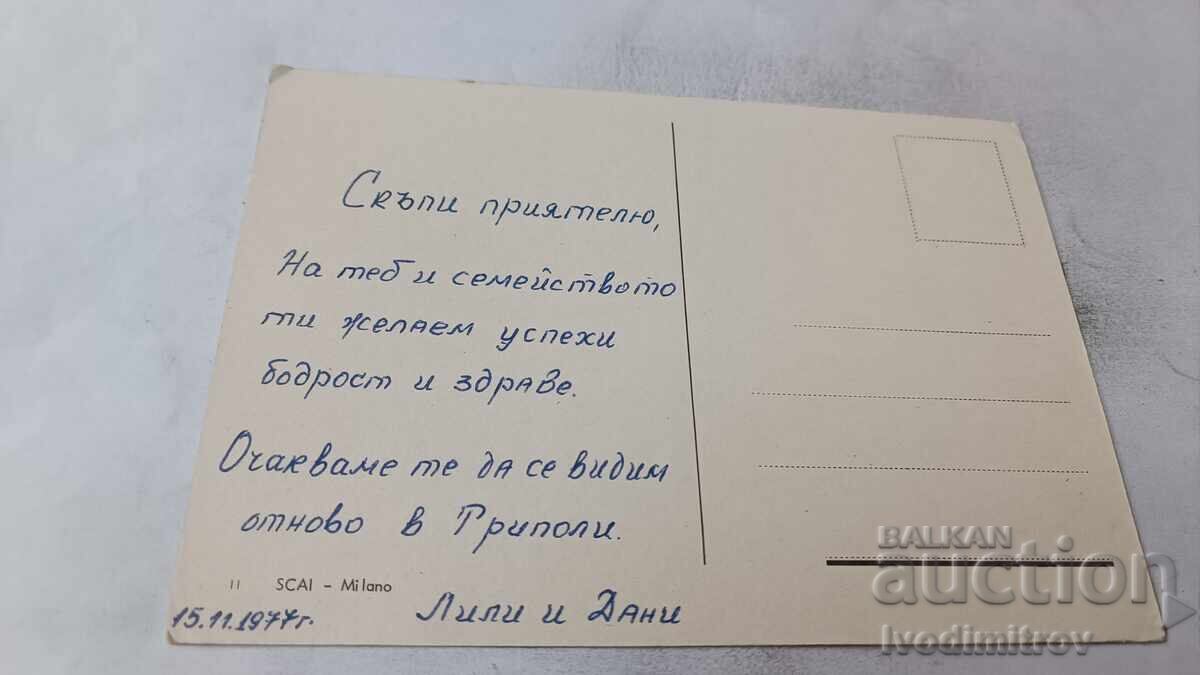 Скъпи приятелю,
На теб и семейството
ти желаем успехи
бодрост и здраве.
Очакваме те да се видим
отново в Триполи.
11 SCAI – Milano
15.11.1977г.
Лили и Дани
BALKAN
auction
Ivodimitrov